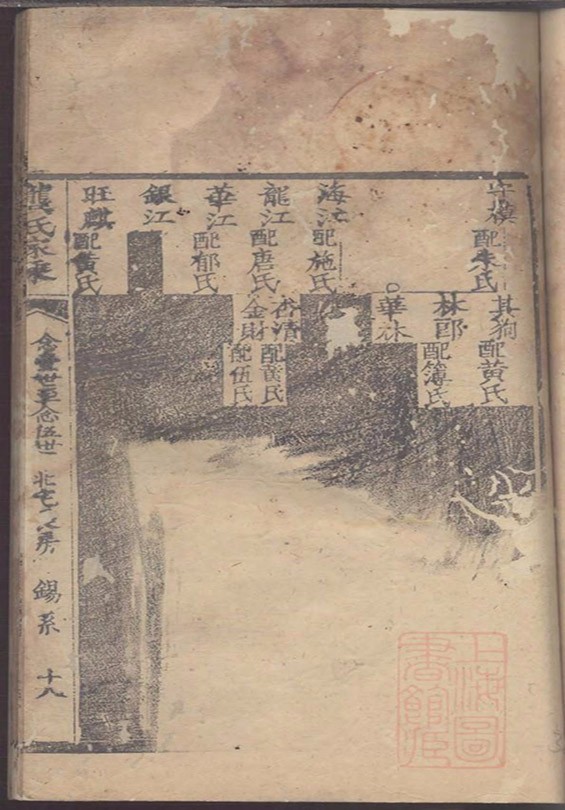 守
配朱氏
其狗
配黃氏
林郎
配簿氏
華林
海江
配施氏
龍江
配唐氏
杏清
配黃氏
金財
配伍氏
華江
配郁氏
銀江
旺麒
配黃氏
龔氏家乘
世至念伍世
北宅
錫系
十八
上海圖書館藏